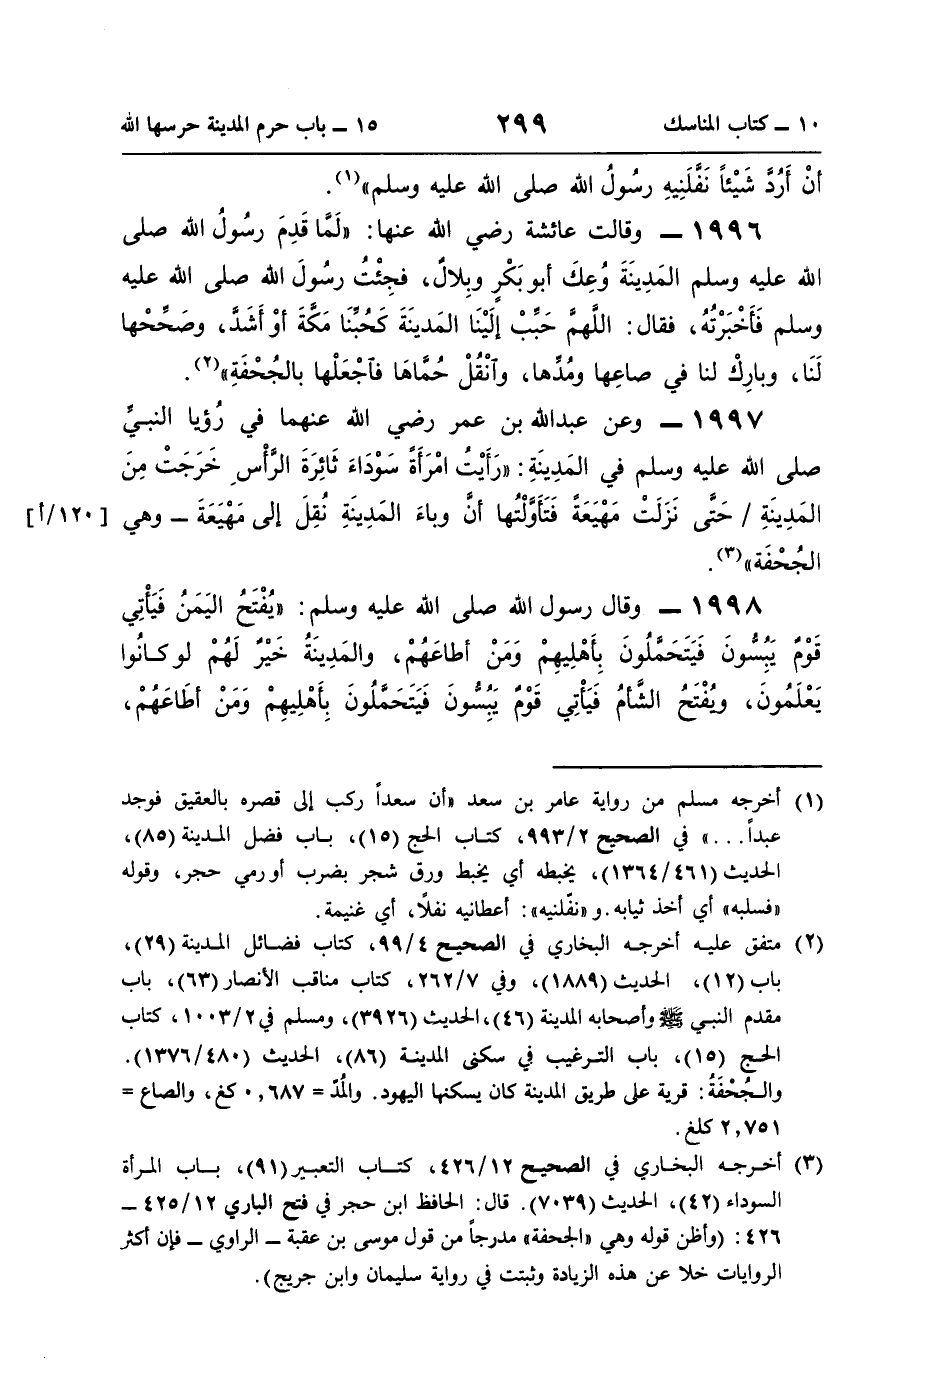 ١٠ ــ كتاب المناسك ٢٩٩ ١٥ ــ باب حرم المدينة حرسها الله
أنْ أَرُدَّ شَيْئاً نَفَّلَنِيهِ رسُولُ الله صلى الله عليه وسلم»(١).
١٩٩٦ ــ وقالت عائشة رضي الله عنها: «لَمَّا قَدِمَ رسُولُ الله صلى
الله عليه وسلم المَدِينَةَ وُعِكَ أبو بَكْرٍ وبِلالٌ، فجِئْتُ رسُولَ الله صلى الله عليه
وسلم فَأَخْبَرْتُهُ، فقال: اللَّهمَّ حَبِّبْ إلَيْنَا المَدينَةَ كَحُبِّنَا مَكَّةَ أوْ أشَدَّ، وصَحِّحْها
لَنَا، وبارِكْ لنا في صاعِها ومُدِّها، وٱنْقُلْ حُمَّاهَا فٱجْعَلْها بالجُحْفَةِ»(٢).
١٩٩٧ ــ وعن عبدالله بن عمر رضي الله عنهما في رُؤيا النبيِّ
صلى الله عليه وسلم في المَدِينَةِ: «رَأَيْتُ امْرَأَةً سَوْدَاءَ ثَائِرَةَ الرَّأْسِ خَرَجَتْ مِنَ
المَدِينَةِ / حَتَّى نَزَلَتْ مَهْيَعَةً فَتَأَوَّلْتُها أنَّ وباءَ المَدِينَةِ نُقِلَ إلى مَهْيَعَةَ ــ وهي [١٢٠/أ]
الجُحْفَة»(٣).
١٩٩٨ ــ وقال رسول الله صلى الله عليه وسلم: «يُفْتَحُ اليَمَنُ فَيَأْتِي
قَوْمٌ يَبُسُّونَ فَيَتَحَمَّلُونَ بِأَهْلِيهِمْ وَمَنْ أطاعَهُمْ، والمَدِينَةُ خَيْرٌ لَهُمْ لو كانُوا
يَعْلَمُونَ، ويُفْتَحُ الشَّأمُ فَيَأْتِي قَوْمٌ يَبُسُّونَ فَيَتَحَمَّلُونَ بِأَهْلِيهِمْ وَمَنْ أطَاعَهُمْ،
(١) أخرجه مسلم من رواية عامر بن سعد «أن سعداً ركب إلى قصره بالعقيق فوجد
عبداً...» في الصحيح ٩٩٣/٢، كتاب الحج (١٥)، باب فضل المدينة (٨٥)،
الحديث (١٣٦٤/٤٦١)، يخبطه أي يخبط ورق شجر بضرب أو رمي حجر، وقوله
«فسلبه» أي أخذ ثيابه. و«نفّلنيه»: أعطانيه نفلًا، أي غنيمة.
(٢) متفق عليه أخرجه البخاري في الصحيح ٩٩/٤، كتاب فضائل المدينة (٢٩)،
باب (١٢)، الحديث (١٨٨٩)، وفي ٢٦٢/٧، كتاب مناقب الأنصار (٦٣)، باب
مقدم النبي ﷺ وأصحابه المدينة (٤٦)، الحديث (٣٩٢٦)، ومسلم في ١٠٠٣/٢، كتاب
الحج (١٥)، باب الترغيب في سكنى المدينة (٨٦)، الحديث (١٣٧٦/٤٨٠).
والجُحْفَةُ: قرية على طريق المدينة كان يسكنها اليهود. والمُدّ = ٠,٦٨٧ كغ، والصاع =
٢,٧٥١ كلغ.
(٣) أخرجه البخاري في الصحيح ٤٢٦/١٢، كتاب التعبير (٩١)، باب المرأة
السوداء (٤٢)، الحديث (٧٠٣٩). قال: الحافظ ابن حجر في فتح الباري ٤٢٥/١٢ ــ
٤٢٦: (وأظن قوله وهي «الجحفة» مدرجاً من قول موسى بن عقبة ــ الراوي ــ فإن أكثر
الروايات خلا عن هذه الزيادة وثبتت في رواية سليمان وابن جريج).